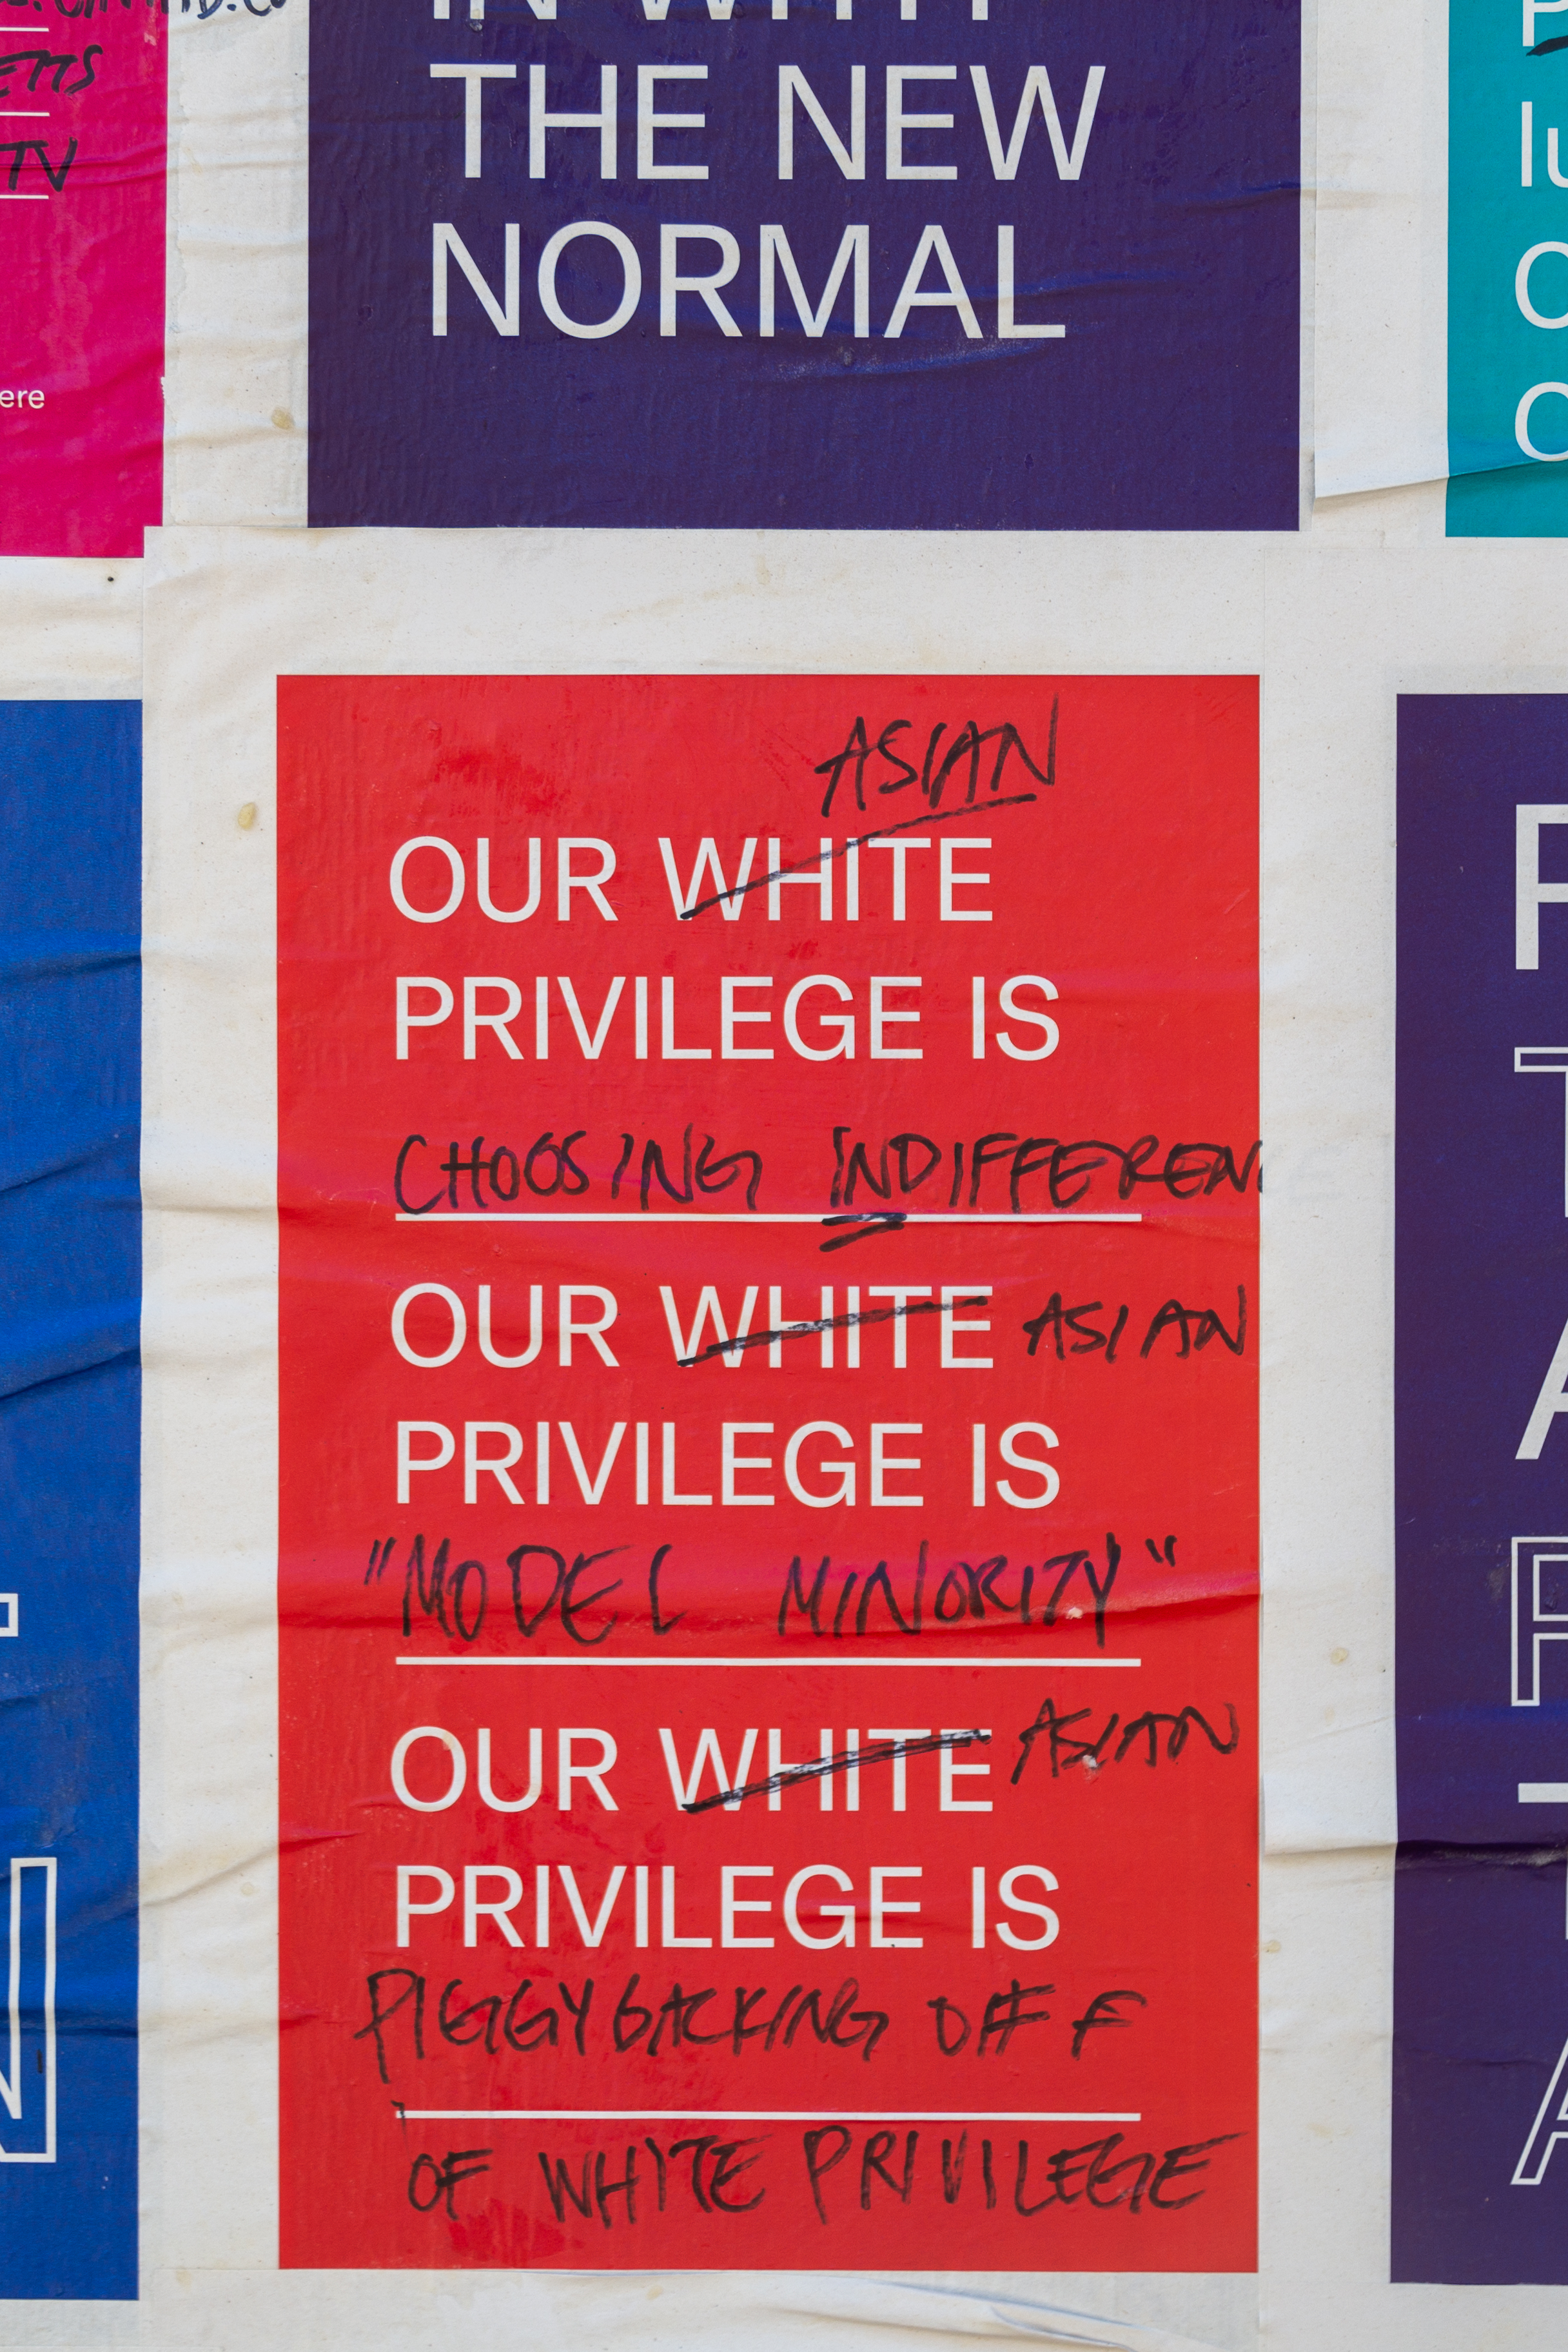 THE NEW
NORMAL
TV
ere
ASIAN
OUR WHITE
PRIVILEGE IS
CHOOSING INDIFFEREN
OUR WHITE ASIAN
PRIVILEGE IS
"MODEL MINORITY"
OUR WHITE ASIAN
PRIVILEGE IS
PIGGYBACKING OFF
OF WHITE PRIVILEGE